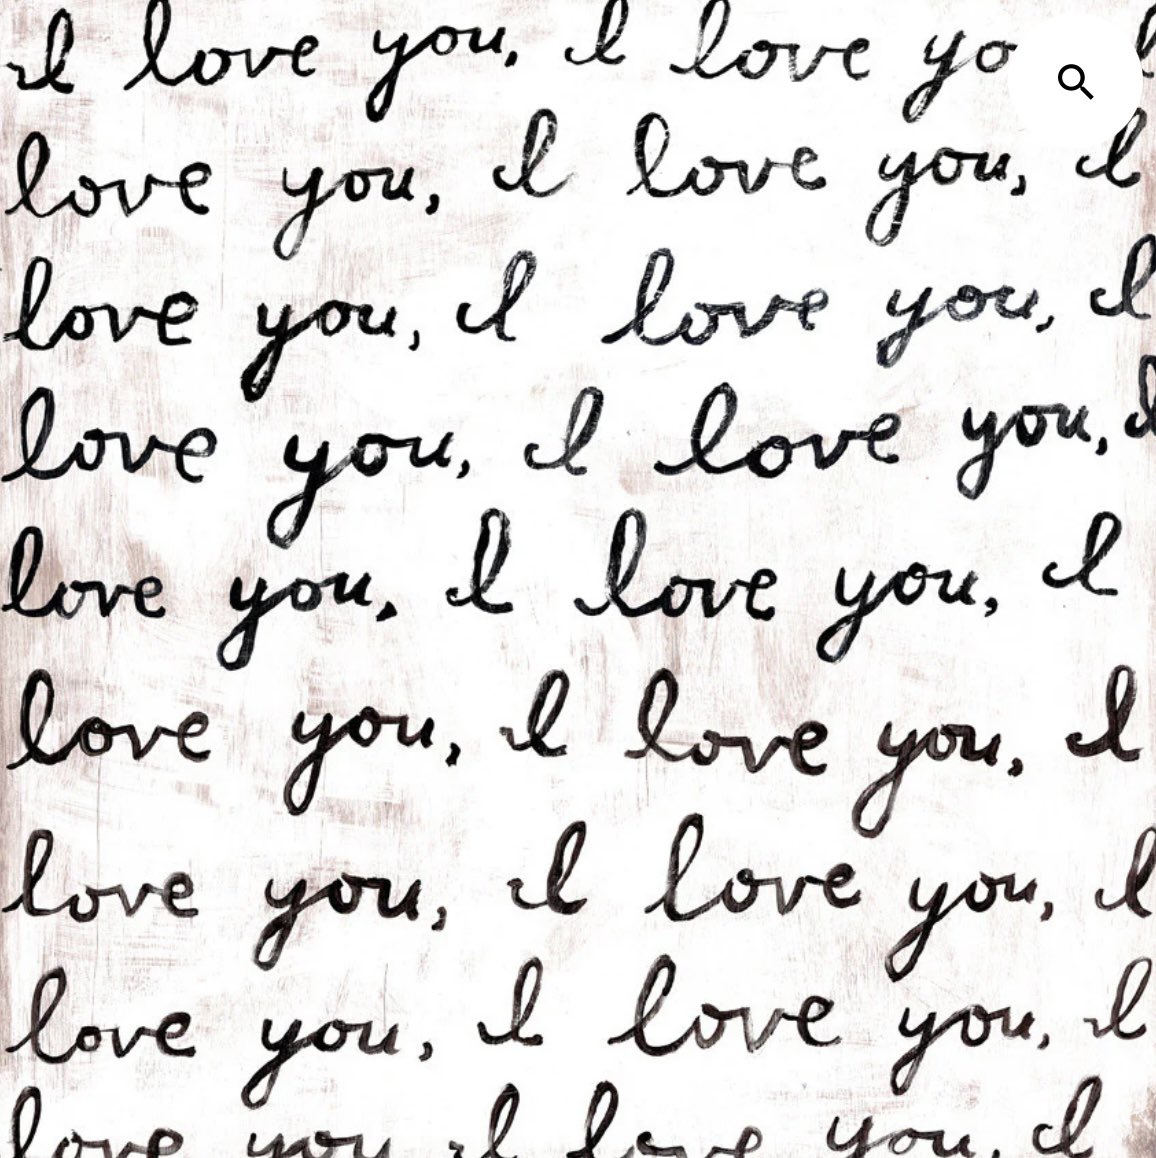 I love you, I love yo I
love you, I love you, I
love you, I love you, I
love you, I love you, I
love you, I love you, I
love you, I love you, I
love you, I love you, I
love you, I love you, I
love you, I love you, I